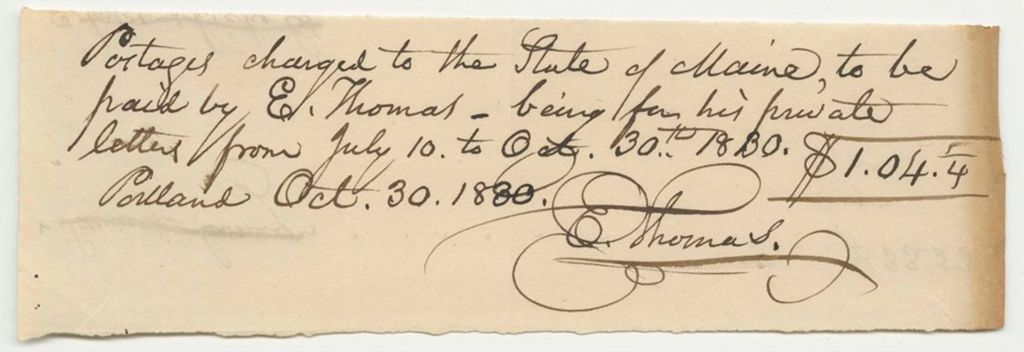 Postages charged to the State of Maine, to be
paid by E. Thomas - being for his private
letters from July 10. to Oct. 30.th 1830. $1.04.1/4
Portland Oct. 30. 1830.
E. Thomas.